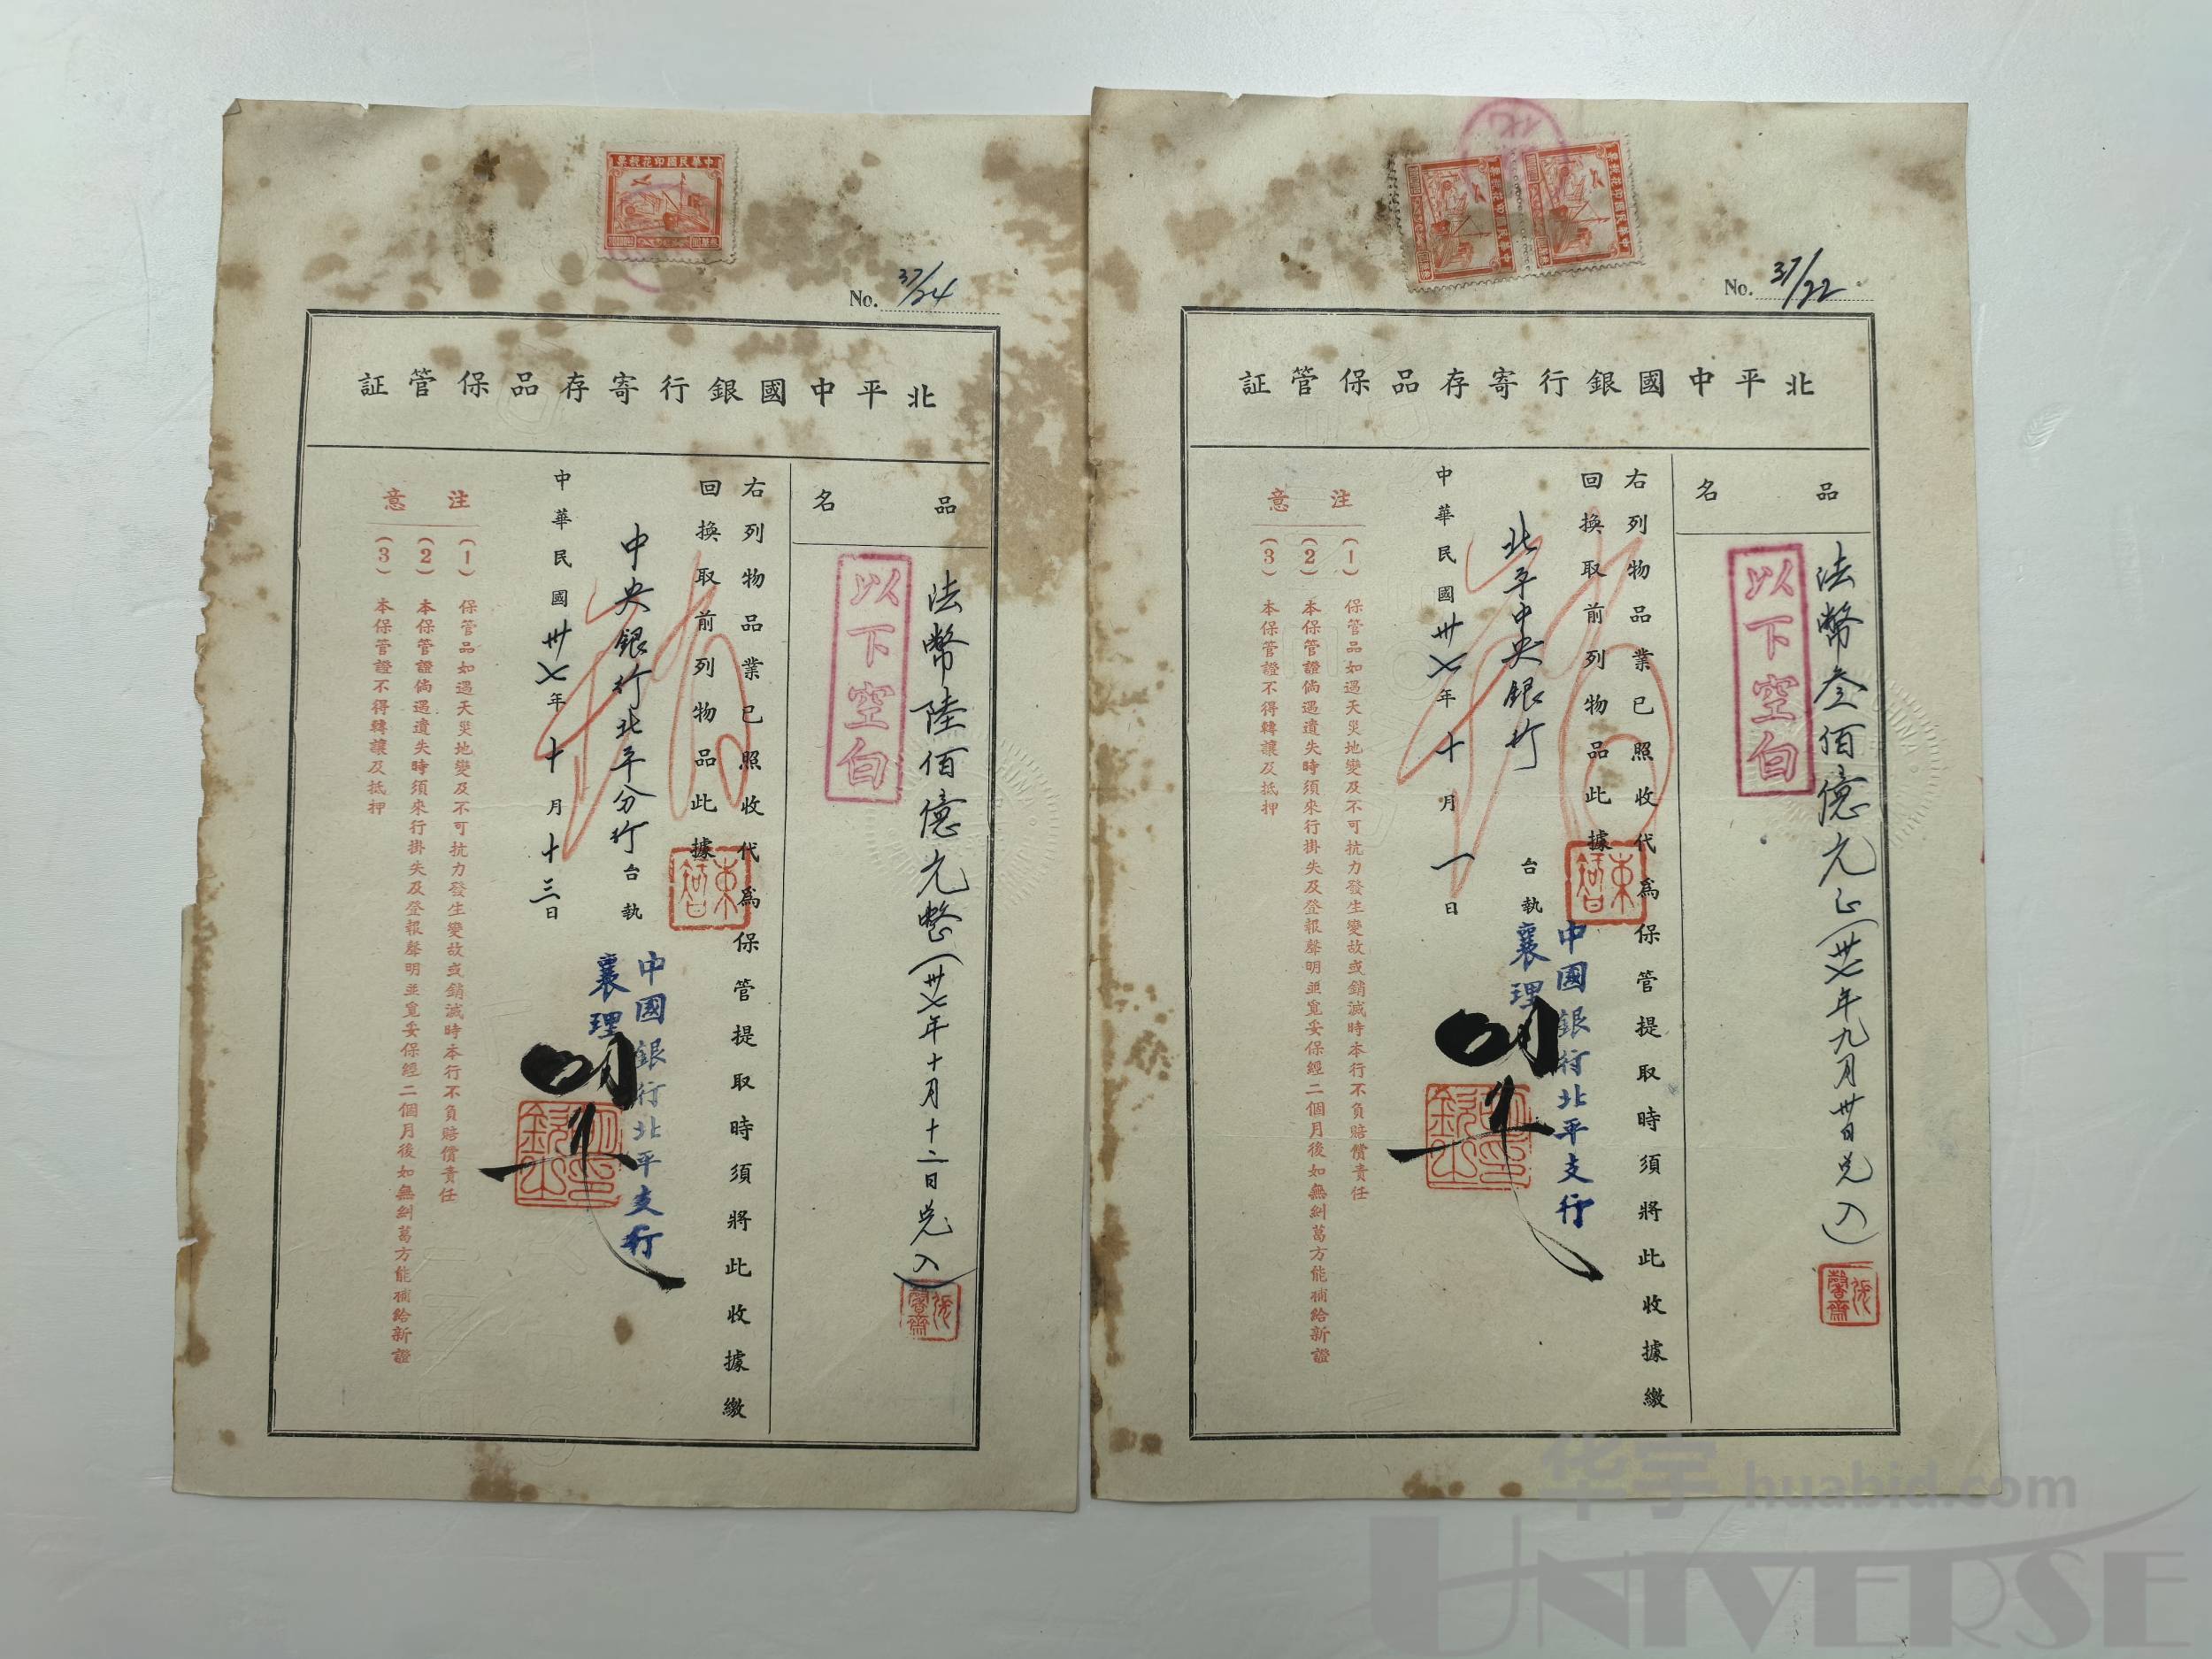 中華民國印花稅票
No. 37/24
北平中國銀行寄存品保管証
品名
法幣陸佰億元整(卅七年十月十二日兌入)
以下空白
右列物品業已照收代為保管提取時須將此收據繳
回換取前列物品此據
中央銀行北平分行台執
中國銀行北平支行
襄理
中華民國卅七年十月十三日
注意
(1) 保管品如遇天災地變及不可抗力發生變故或銷滅時本行不負賠償責任
(2) 本保管證倘遇遺失時須來行掛失及登報聲明並覓妥保經二個月後如無糾葛方能補給新證
(3) 本保管證不得轉讓及抵押
中華民國印花稅票
中華民國印花稅票
No. 37/22
北平中國銀行寄存品保管証
品名
法幣叁佰億元正(卅七年九月卅日兌入)
以下空白
右列物品業已照收代為保管提取時須將此收據繳
回換取前列物品此據
北平中央銀行台執
中國銀行北平支行
襄理
中華民國卅七年十月一日
注意
(1) 保管品如遇天災地變及不可抗力發生變故或銷滅時本行不負賠償責任
(2) 本保管證倘遇遺失時須來行掛失及登報聲明並覓妥保經二個月後如無糾葛方能補給新證
(3) 本保管證不得轉讓及抵押
华宇 huabid.com
UNIVERSE